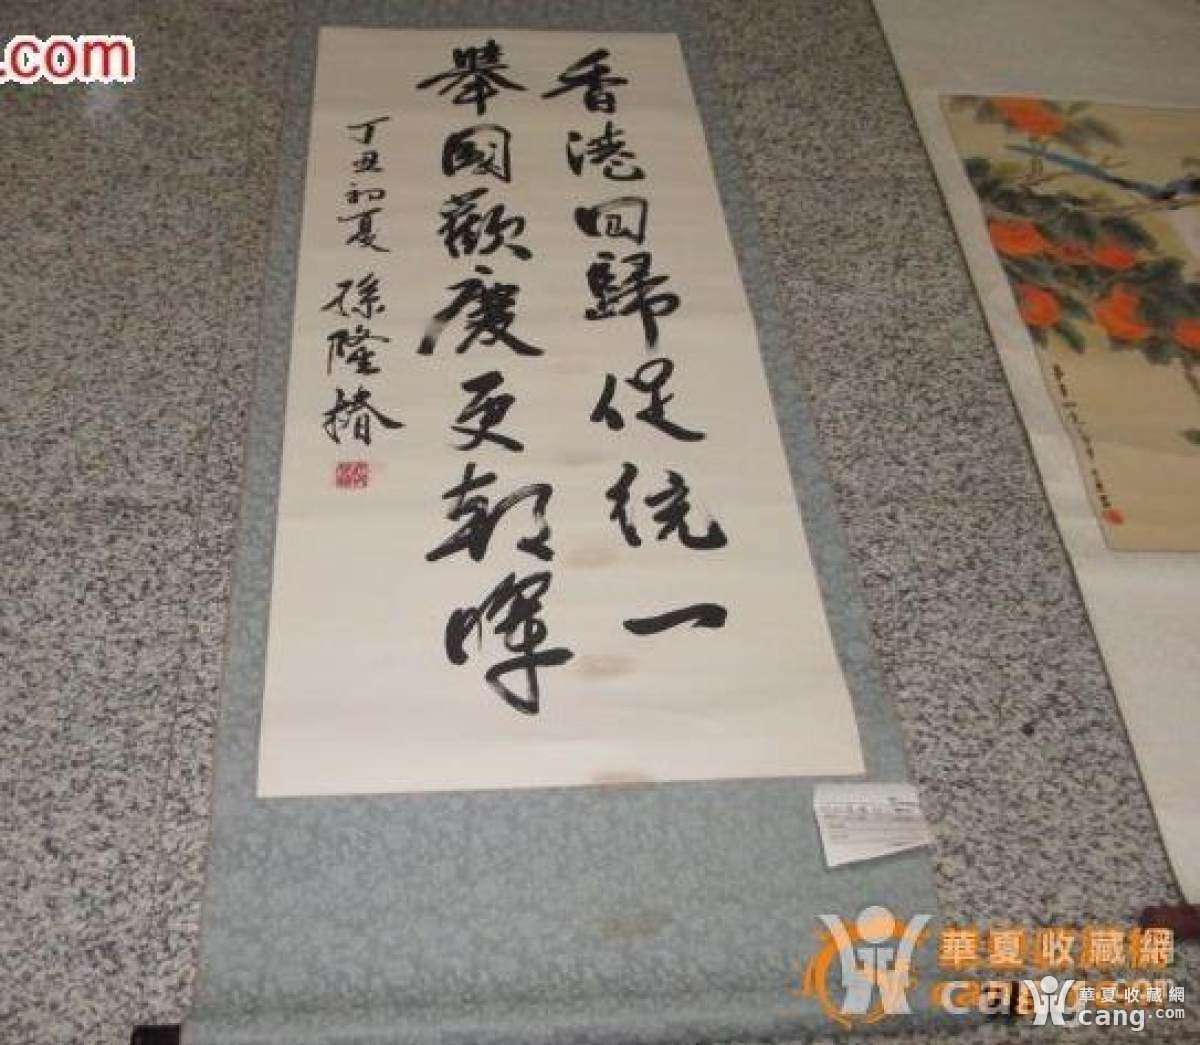 香港回歸促統一
舉國歡慶更朝暉
丁丑初夏 孫隆椿
.com
華夏收藏網
cang.com
華夏收藏網
cang.com